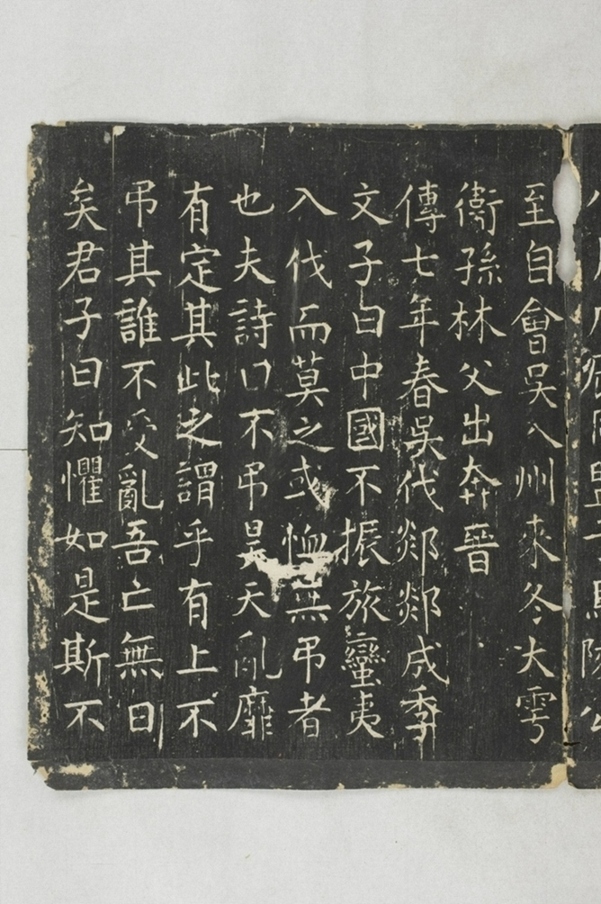 至自會吳入州來冬大雩
衛孫林父出奔晉
傳七年春吳伐郯郯成季
文子曰中國不振旅蠻夷
入伐而莫之或恤無弔者
也夫詩曰不弔昊天亂靡
有定其此之謂乎有上不
弔其誰不受亂吾亡無日
矣君子曰知懼如是斯不